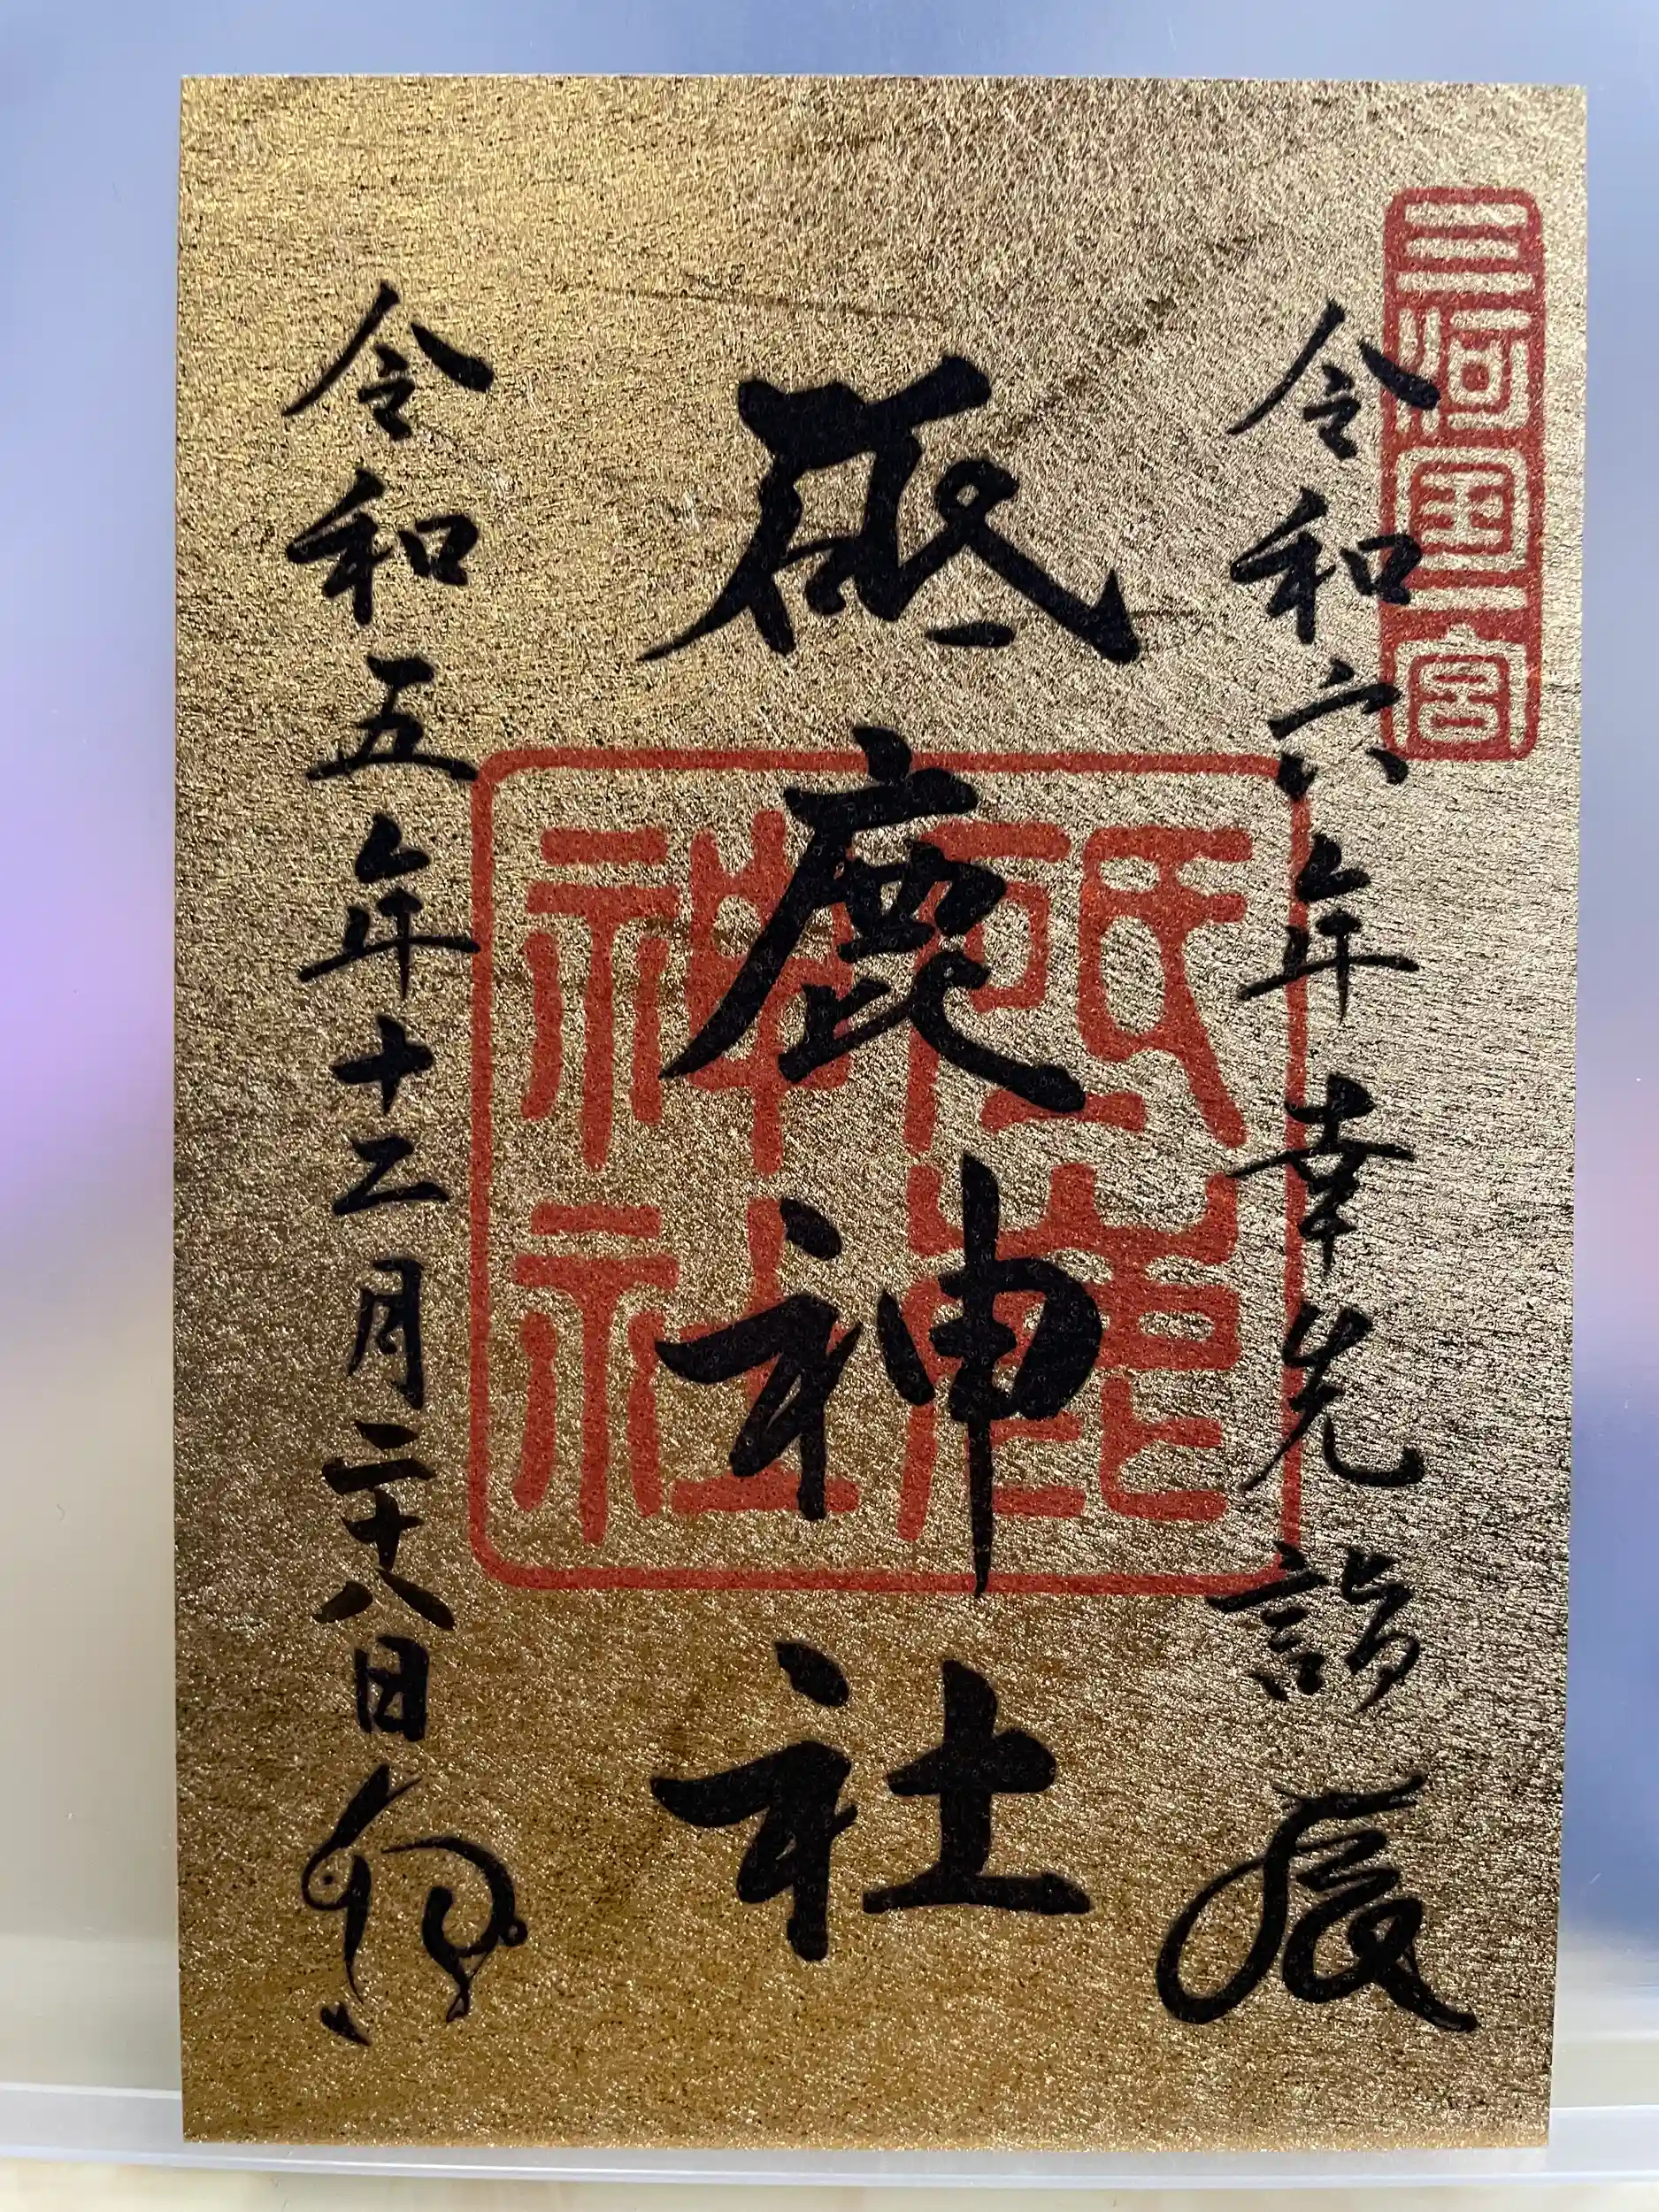 三河国一宮
令和六年幸先詣 辰
砥鹿神社
砥鹿神社
令和五年十二月二十八日 卯